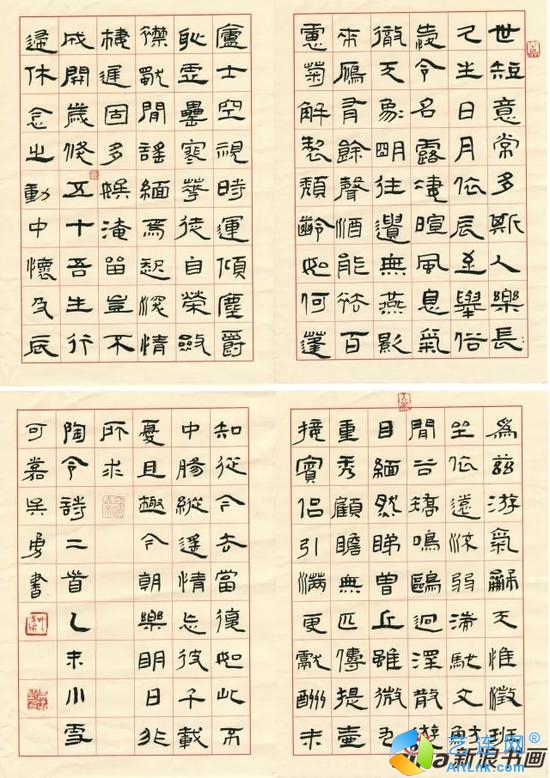 世短意常多斯人樂長
久生日月依辰至舉俗
愛令名露淒暄風息氣
徹天象明往遺無燕影
來鴈有餘聲酒能祛百
慮菊解製頹齡如何蓬
廬士空視時運傾塵爵
恥虛罍寒華徒自榮斂
襟獨閒謠緬焉起深情
棲遲固多娛淹留豈不
成開歲倏五十吾生行
歸休念之動中懷及辰
為茲游氣和天惟澂班
坐依遠流弱湍馳文魴
閒谷矯鳴鷗迥澤散遊
目緬然睇曾丘雖微九
重秀顧瞻無匹儔提壺
接賓侶引滿更獻酬未
知從今去當復如此不
中觴縱遙情忘彼千載
憂且極今朝樂明日非
所求
陶令詩二首乙未小雪
可嘉吳勇書
艺连网
ArtLnk.com
新浪书画